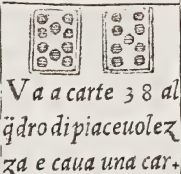 V a a carte 3 8 al
q̃dro di piaceuolez
za e caua una car+